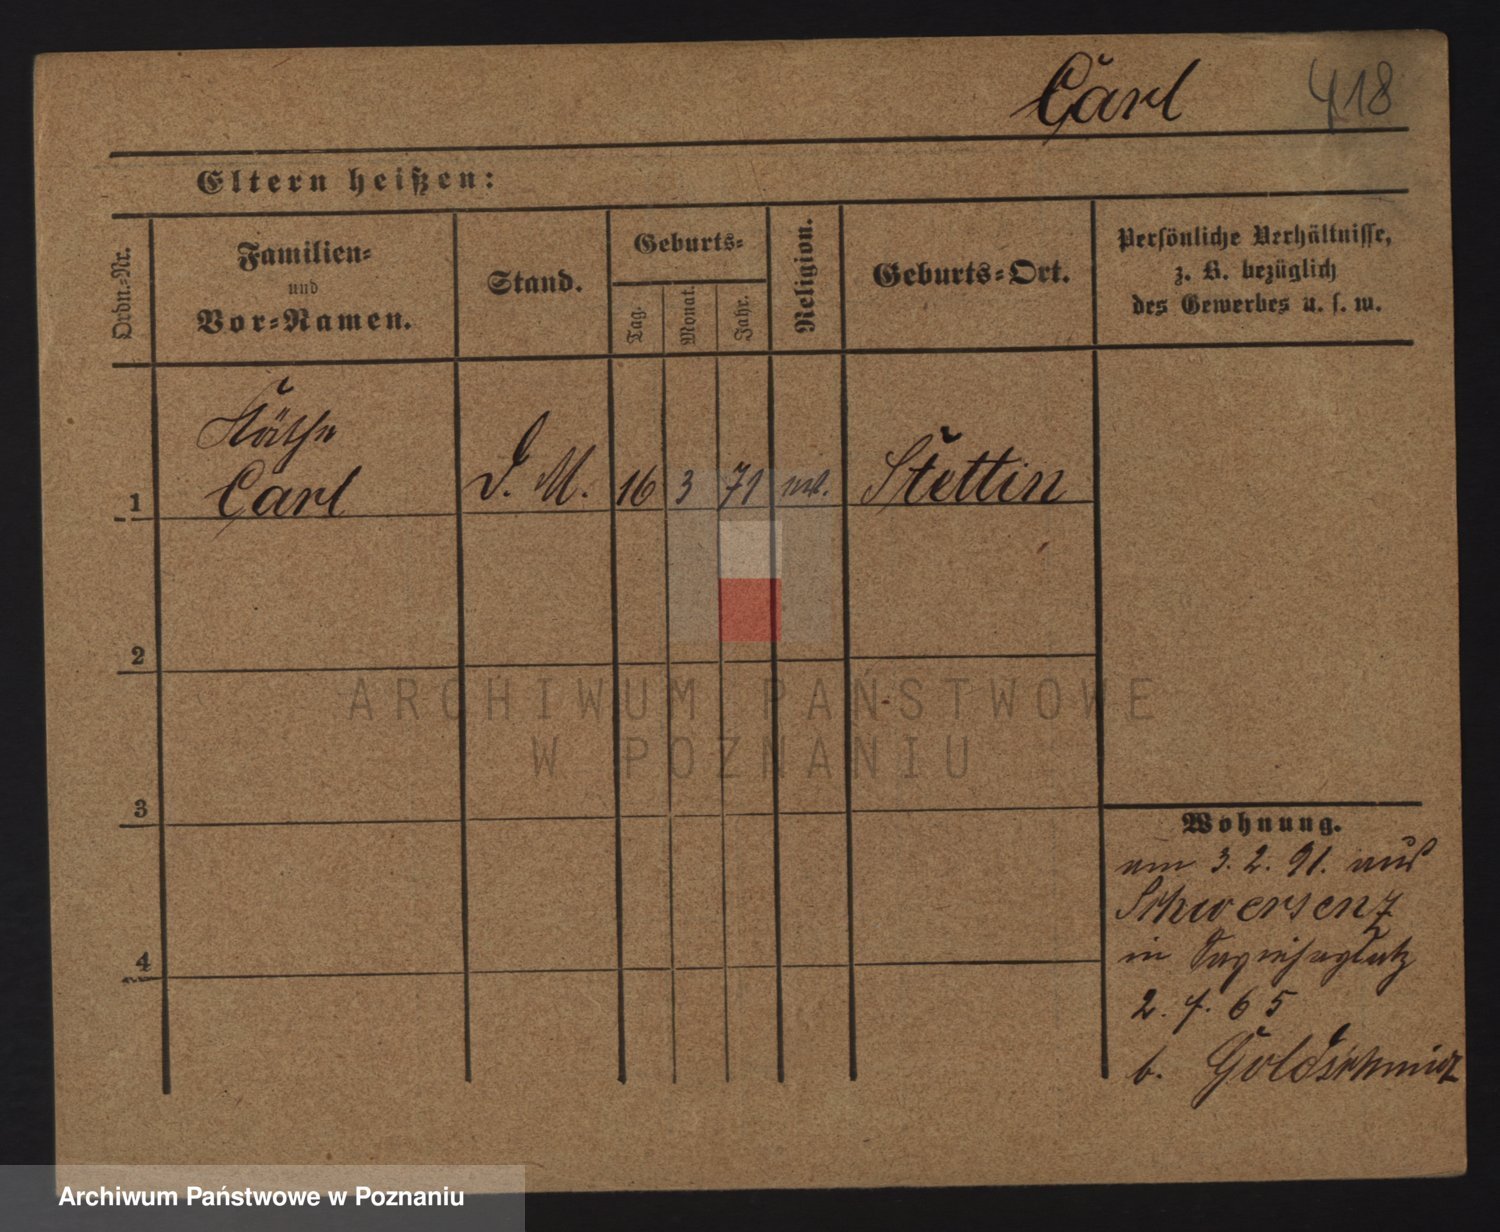 Carl 418
Eltern heißen:
Ordn.-Nr.
Familien-
und
Vor-Namen.
Stand.
Geburts-
Tag.
Monat.
Jahr.
Religion.
Geburts-Ort.
Persönliche Verhältnisse,
z. B. bezüglich
des Gewerbes u. s. w.
Käthe
1 Carl D. M. 16 3 71 ev. Stettin
2
3
4
Wohnung.
am 3. 2. 91. aus
Schwersenz
in
2. f. 65
b. Goldschmidt
ARCHIWUM PAŃSTWOWE
W POZNANIU
Archiwum Państwowe w Poznaniu